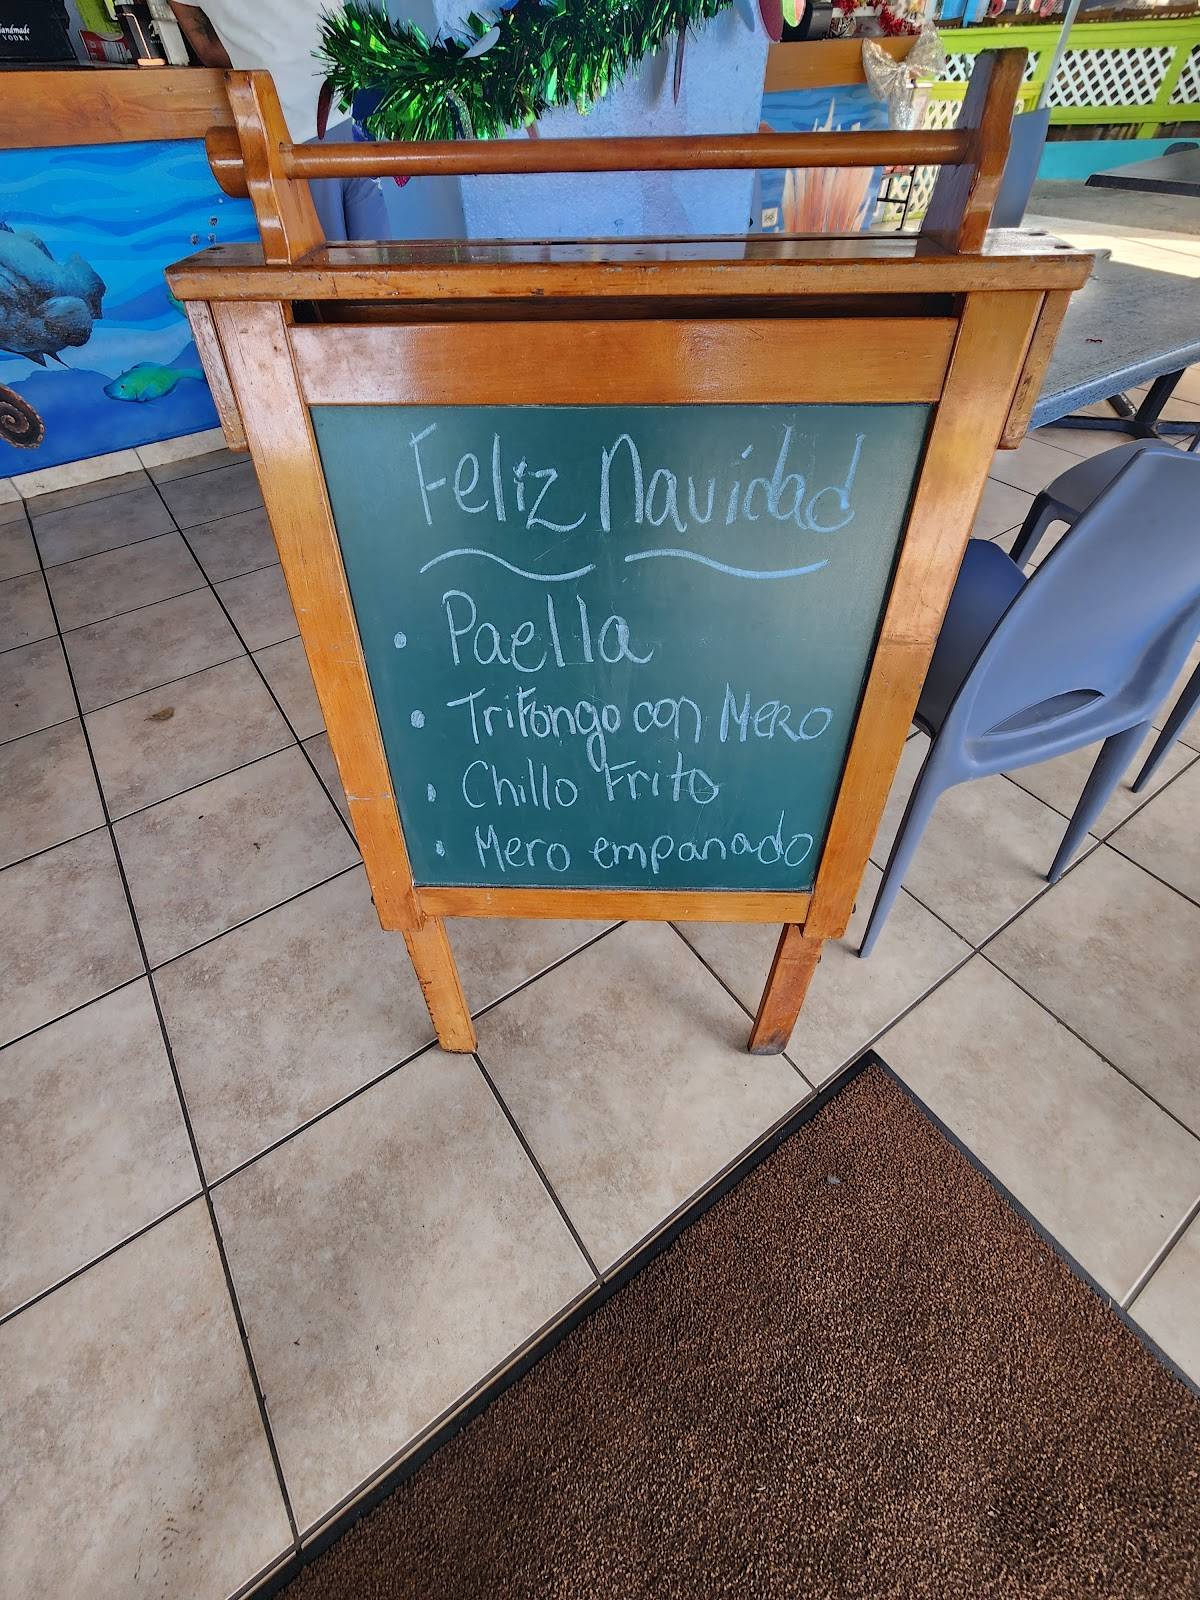 Handmade
VODKA
Feliz Navidad
• Paella
• Trifongo con Mero
• Chillo Frito
• Mero empanado